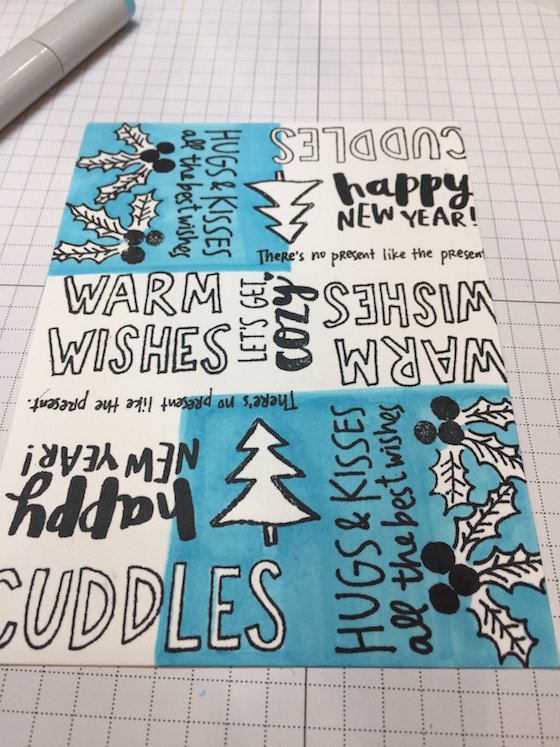 HUGS & KISSES
all the best wishes
CUDDLES
happy
NEW YEAR!
There's no present like the present.
WARM
WISHES
LET'S GET
COZY.
WARM
WISHES
There's no present like the present.
happy
NEW YEAR!
CUDDLES
HUGS & KISSES
all the best wishes